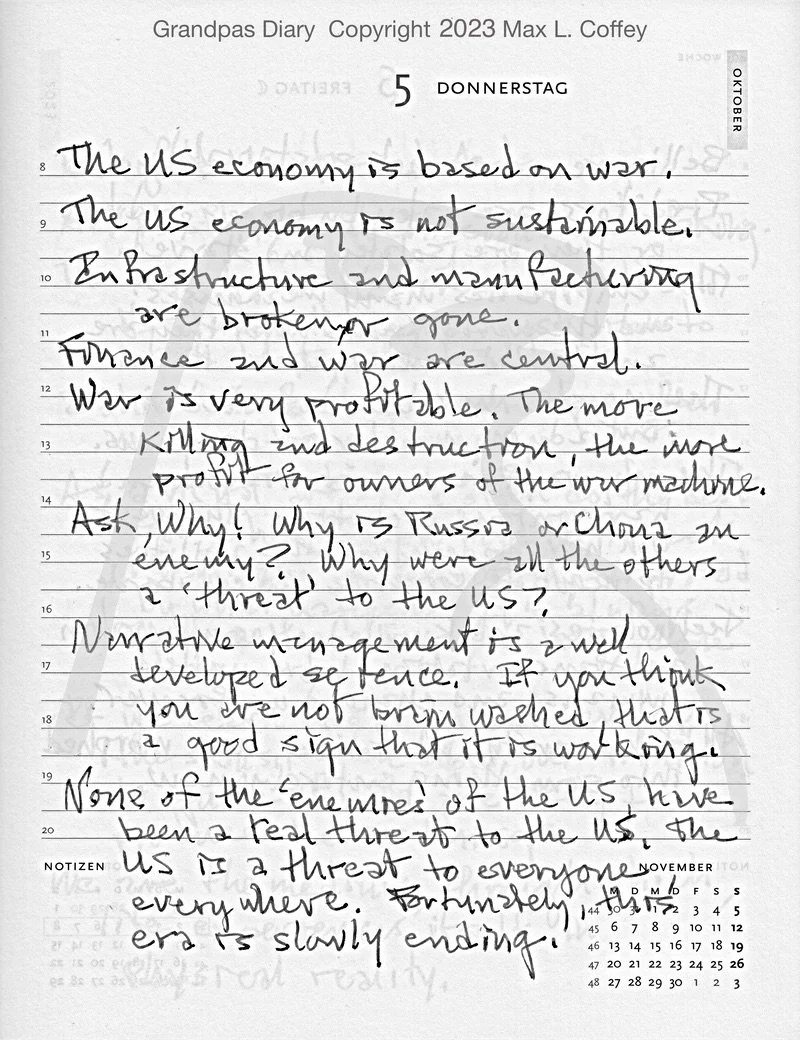 Grandpas Diary Copyright 2023 Max L. Coffey
5 DONNERSTAG
OKTOBER
8 The US economy is based on war.
9 The US economy is not sustainable.
10 Infrastructure and manufacturing
are broken or gone.
11
Finance and war are central.
12 War is very profitable. The more
13 killing and destruction, the more
profit for owners of the war machine.
14
Ask, Why! Why is Russia or China an
15 enemy? Why were all the others
a 'threat' to the US?
16
Narrative management is a well
17 developed science. If you think
18 you are not brain washed, that is
a good sign that it is working.
19
None of the 'enemies' of the US, have
20 been a real threat to the US. The
NOTIZEN US is a threat to everyone NOVEMBER
everywhere. Fortunately, this
era is slowly ending.
M D M D F S S
44 30 31 1 2 3 4 5
45 6 7 8 9 10 11 12
46 13 14 15 16 17 18 19
47 20 21 22 23 24 25 26
48 27 28 29 30 1 2 3